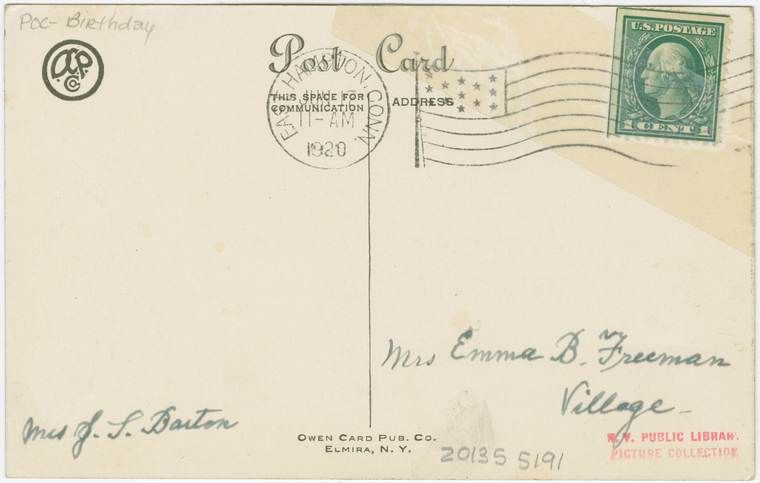 POC- Birthday
Post Card
THIS SPACE FOR
COMMUNICATION
ADDRESS
EAST HAMPTON, CONN
11-AM
1920
U.S. POSTAGE
1 CENT 1
Mrs Emma B. Freeman
Village
Mrs J. S. Barton
OWEN CARD PUB. CO.
ELMIRA, N. Y.
N.Y. PUBLIC LIBRARY
PICTURE COLLECTION
20135 5191